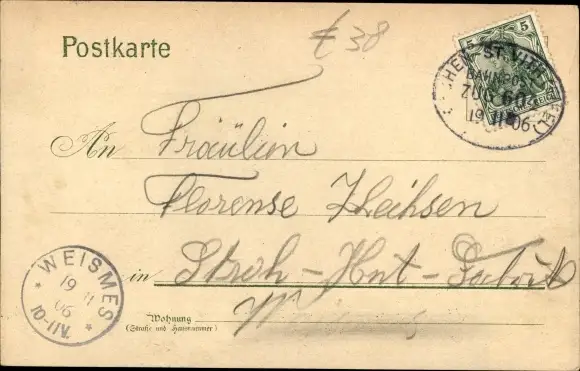 Postkarte
€ 38
5
HEN-ST. VITH
BAHNPOST
ZUG 60
19 II 06
An Fräulein
Florense
WEISMES
19 II 06
10-11V.
in Stroh-Hut-Fabrik
Wohnung
(Straße und Hausnummer)